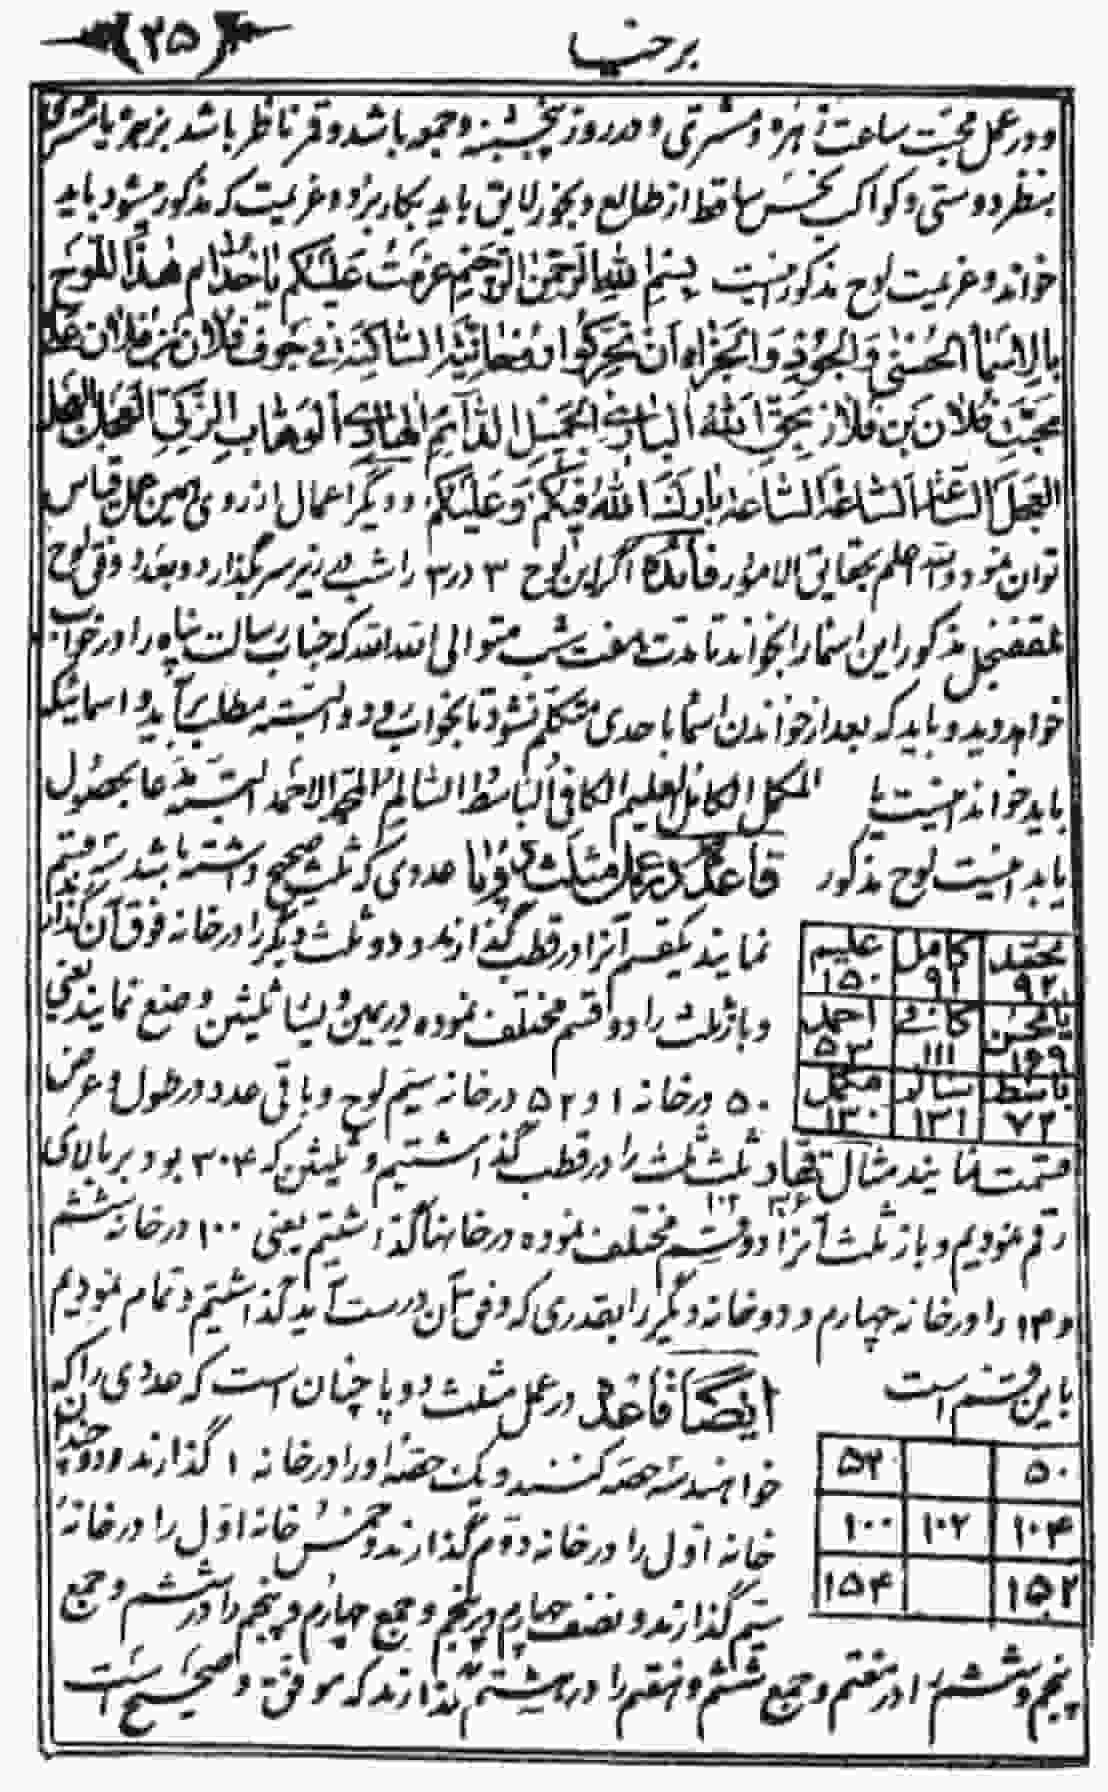 برخیا (۲۵)
و در عمل محبت ساعت زهره و مشتری و در روز پنجشنبه و جمعه باشد و قمر ناظر باشد بزهره یا مشتری
بنظر دوستی و کواکب نحس ساقط از طالع و بخور لایق باید بکار برد و عزیمت که مذکور میشود باید
خواند و عزیمت لوح مذکور اینست بِسْمِ اللهِ الرَّحْمٰنِ الرَّحِیْمِ عَزَمْتُ عَلَیْکُمْ یا خُدّام هٰذَا اللَّوْحِ
بِالاَسْماءِ الْحُسْنیٰ وَ اَنْ تَحَرَّکُوا السّاکِنَةَ فی جَوْفِ فُلان بْنِ فُلان عَلیٰ
مَحَبَّتِ فُلان بن فُلان بِحَقِّ اللهُ الباری الْجَمیلِ الدّائِمِ الْهادی الْوَهّابِ الزَّکیِّ الْعَجَلَ الْعَجَلَ
الْعَجَلَ السّاعَةَ السّاعَةَ السّاعَةَ بارَکَ اللهُ فیکُمْ وَ عَلَیْکُمْ و دیگر اعمال از روی همین عمل قیاس
توان نمود والله اعلم بحقایق الامور فائده اگر این لوح ۳ در ۳ را شب در زیر سر بگذارد و بعدد وفق لوح
مذکور این اسما را بخواند تا مدت هفت شب متوالی انشاءالله که جناب رسالت پناه را در خواب
خواهد دید و باید که بعد از خواندن اسما با احدی متکلم نشود تا بخواب رود و البته مطلب برآید و اسمائیکه
باید خواند اینست یا المکمل الکامل العلیم الکافی الباسط السالم الاحمد البته مدعا بحصول
یابد اینست لوح مذکور
محمد ۹۲ کامل ۹۱ علیم ۱۵۰
۱۶۹ کافی ۱۱۱ احمد ۵۳
باسط ۷۲ سالم ۱۳۱ مکمل ۱۳۰
قاعده در عمل مثلث دو پا عددی که ثلث صحیح داشته باشد سه قسم
نمایند یکقسم آنرا در قطب گذارند و دو ثلث دیگر را در خانه فوق آن گذار
و باز ثلث را دو قسم مختلف نموده در یمین و یسار ثلیثن وضع نمایند یعنی
۵۰ در خانه ۱ و ۵۲ در خانه سیم لوح و باقی عدد در طول و عرض
قسمت نمایند مثال ۳۰۶ ثلث ۱۰۲ را در قطب گذاشتیم و ثلیثن که ۲۰۴ بود بر بالای
رقم نمودیم و باز ثلث آنرا دو قسم مختلف نموده در خانها گذاشتیم یعنی ۱۰۰ در خانه ششم
و ۱۰۴ را در خانه چهارم و دو خانه دیگر را بقدری که وفق آن درست آید گذاشتیم و تمام نمودیم
باین قسم است
۵۰ ۵۲
۱۰۴ ۱۰۲ ۱۰۰
۱۵۲ ۱۵۴
ایضاً قاعده در عمل مثلث دو پا چنان است که عددی را که
خواهند سه حصه کنند و یک حصه او را در خانه ۱ گذارند و دو چندان
خانه اول را در خانه دوم گذارند و خمس خانه اول را در خانه
سیم گذارند و نصف چهارم در پنجم و جمع چهارم و پنجم را در ششم و جمع
پنجم و ششم را در هفتم و جمع ششم و هفتم را در هشتم گذارند که موفق و صحیح است